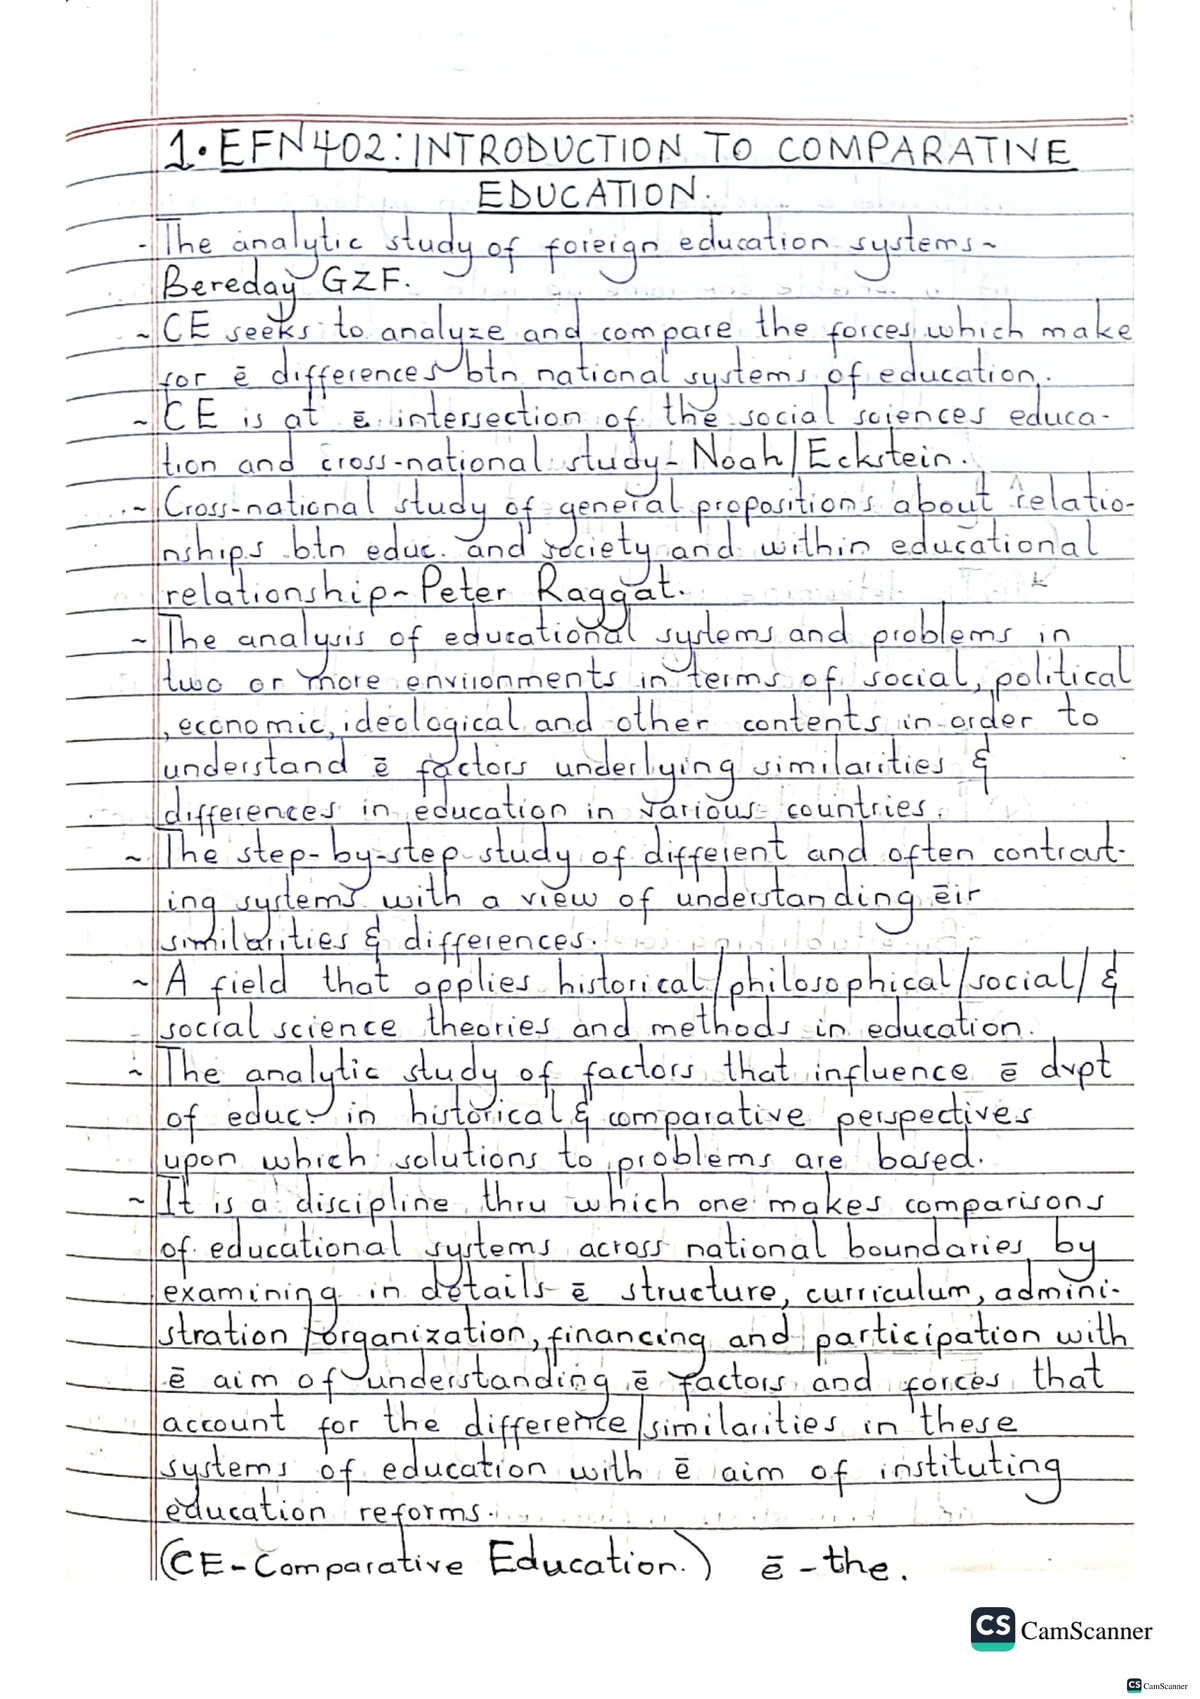 1. EFN402: INTRODUCTION TO COMPARATIVE
EDUCATION.
- The analytic study of foreign education systems~
Bereday GZF.
~ CE seeks to analyze and compare the forces which make
for ē differences btn national systems of education.
~ CE is at ē intersection of the social sciences educa-
tion and cross-national study- Noah/Eckstein.
~ Cross-national study of general propositions about relatio-
nships btn educ. and society and within educational
relationship~ Peter Raggat.
~ The analysis of educational systems and problems in
two or more environments in terms of social, political
, economic, ideological and other contents in order to
understand ē factors underlying similarities &
differences in education in various countries.
~ The step-by-step study of different and often contrast-
ing systems with a view of understanding ēir
similarities & differences.
~ A field that applies historical/philosophical/social/ &
social science theories and methods in education.
~ The analytic study of factors that influence ē dvpt
of educ. in historical & comparative perspectives
upon which solutions to problems are based.
~ It is a discipline thru which one makes comparisons
of educational systems across national boundaries by
examining in details ē structure, curriculum, admini-
stration /organization, financing and participation with
ē aim of understanding ē factors and forces that
account for the difference/similarities in these
systems of education with ē aim of instituting
education reforms.
(CE-Comparative Education.) ē - the.
CS CamScanner
CS CamScanner